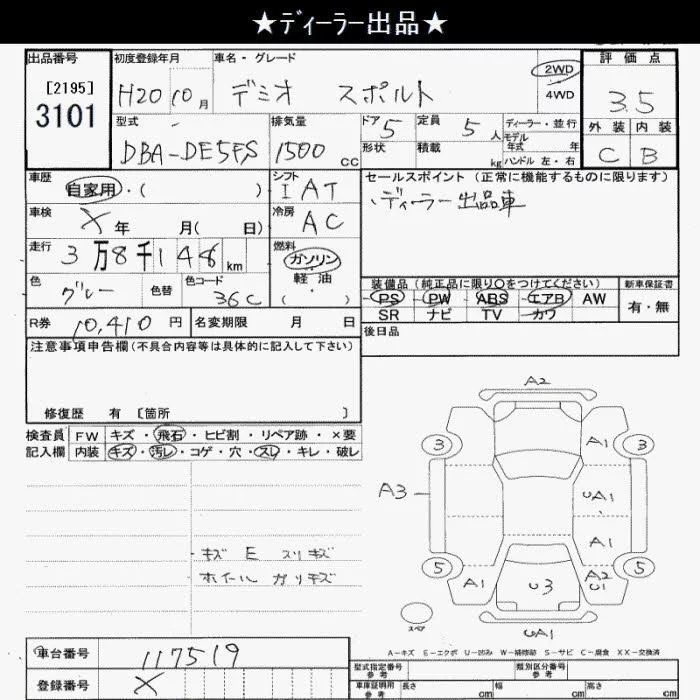 ★ディーラー出品★
出品番号
[2195]
3101
初度登録年月
H20 10月
車名・グレード
デミオ スポルト
2WD
4WD
評価点
3.5
型式
DBA-DE5FS
排気量
1500 cc
ドア 5
形状
定員 5人
積載 kg
ディーラー・並行
モデル年式 年
ハンドル 左・右
外装 内装
C B
車歴
自家用・( )
シフト
IAT
セールスポイント(正常に機能するものに限ります)
ディーラー出品車
車検
X年 月( 日)
冷房
AC
走行
3万8千148km
燃料
ガソリン
軽油
(・)
色
グレー
色替
色コード
36C
装備品(純正品に限り○をつけてください)
新車保証書
PS・PW・ABS・エアB・AW
SR ナビ TV カワ
有・無
R券 10,410円
名変期限 月 日
後日品
注意事項申告欄(不具合内容等は具体的に記入して下さい)
修復歴 有 [箇所 ]
検査員
記入欄
FW キズ・飛石・ヒビ割・リペア跡・×要
内装 キズ・汚レ・コゲ・穴・スレ・キレ・破レ
キズ E スリキズ
ホイール ガリキズ
A2
3
A1
3
A3
UA1
A1
5
A1
U3
A2
U1
5
スペア
UA1
A-キズ E-エクボ U-凹み W-補修跡 S-サビ C-腐食 XX-交換済
車台番号
117519
登録番号
X
型式指定番号
参考
類別区分番号
参考
車庫証明用
参考
長さ cm
幅 cm
高さ cm